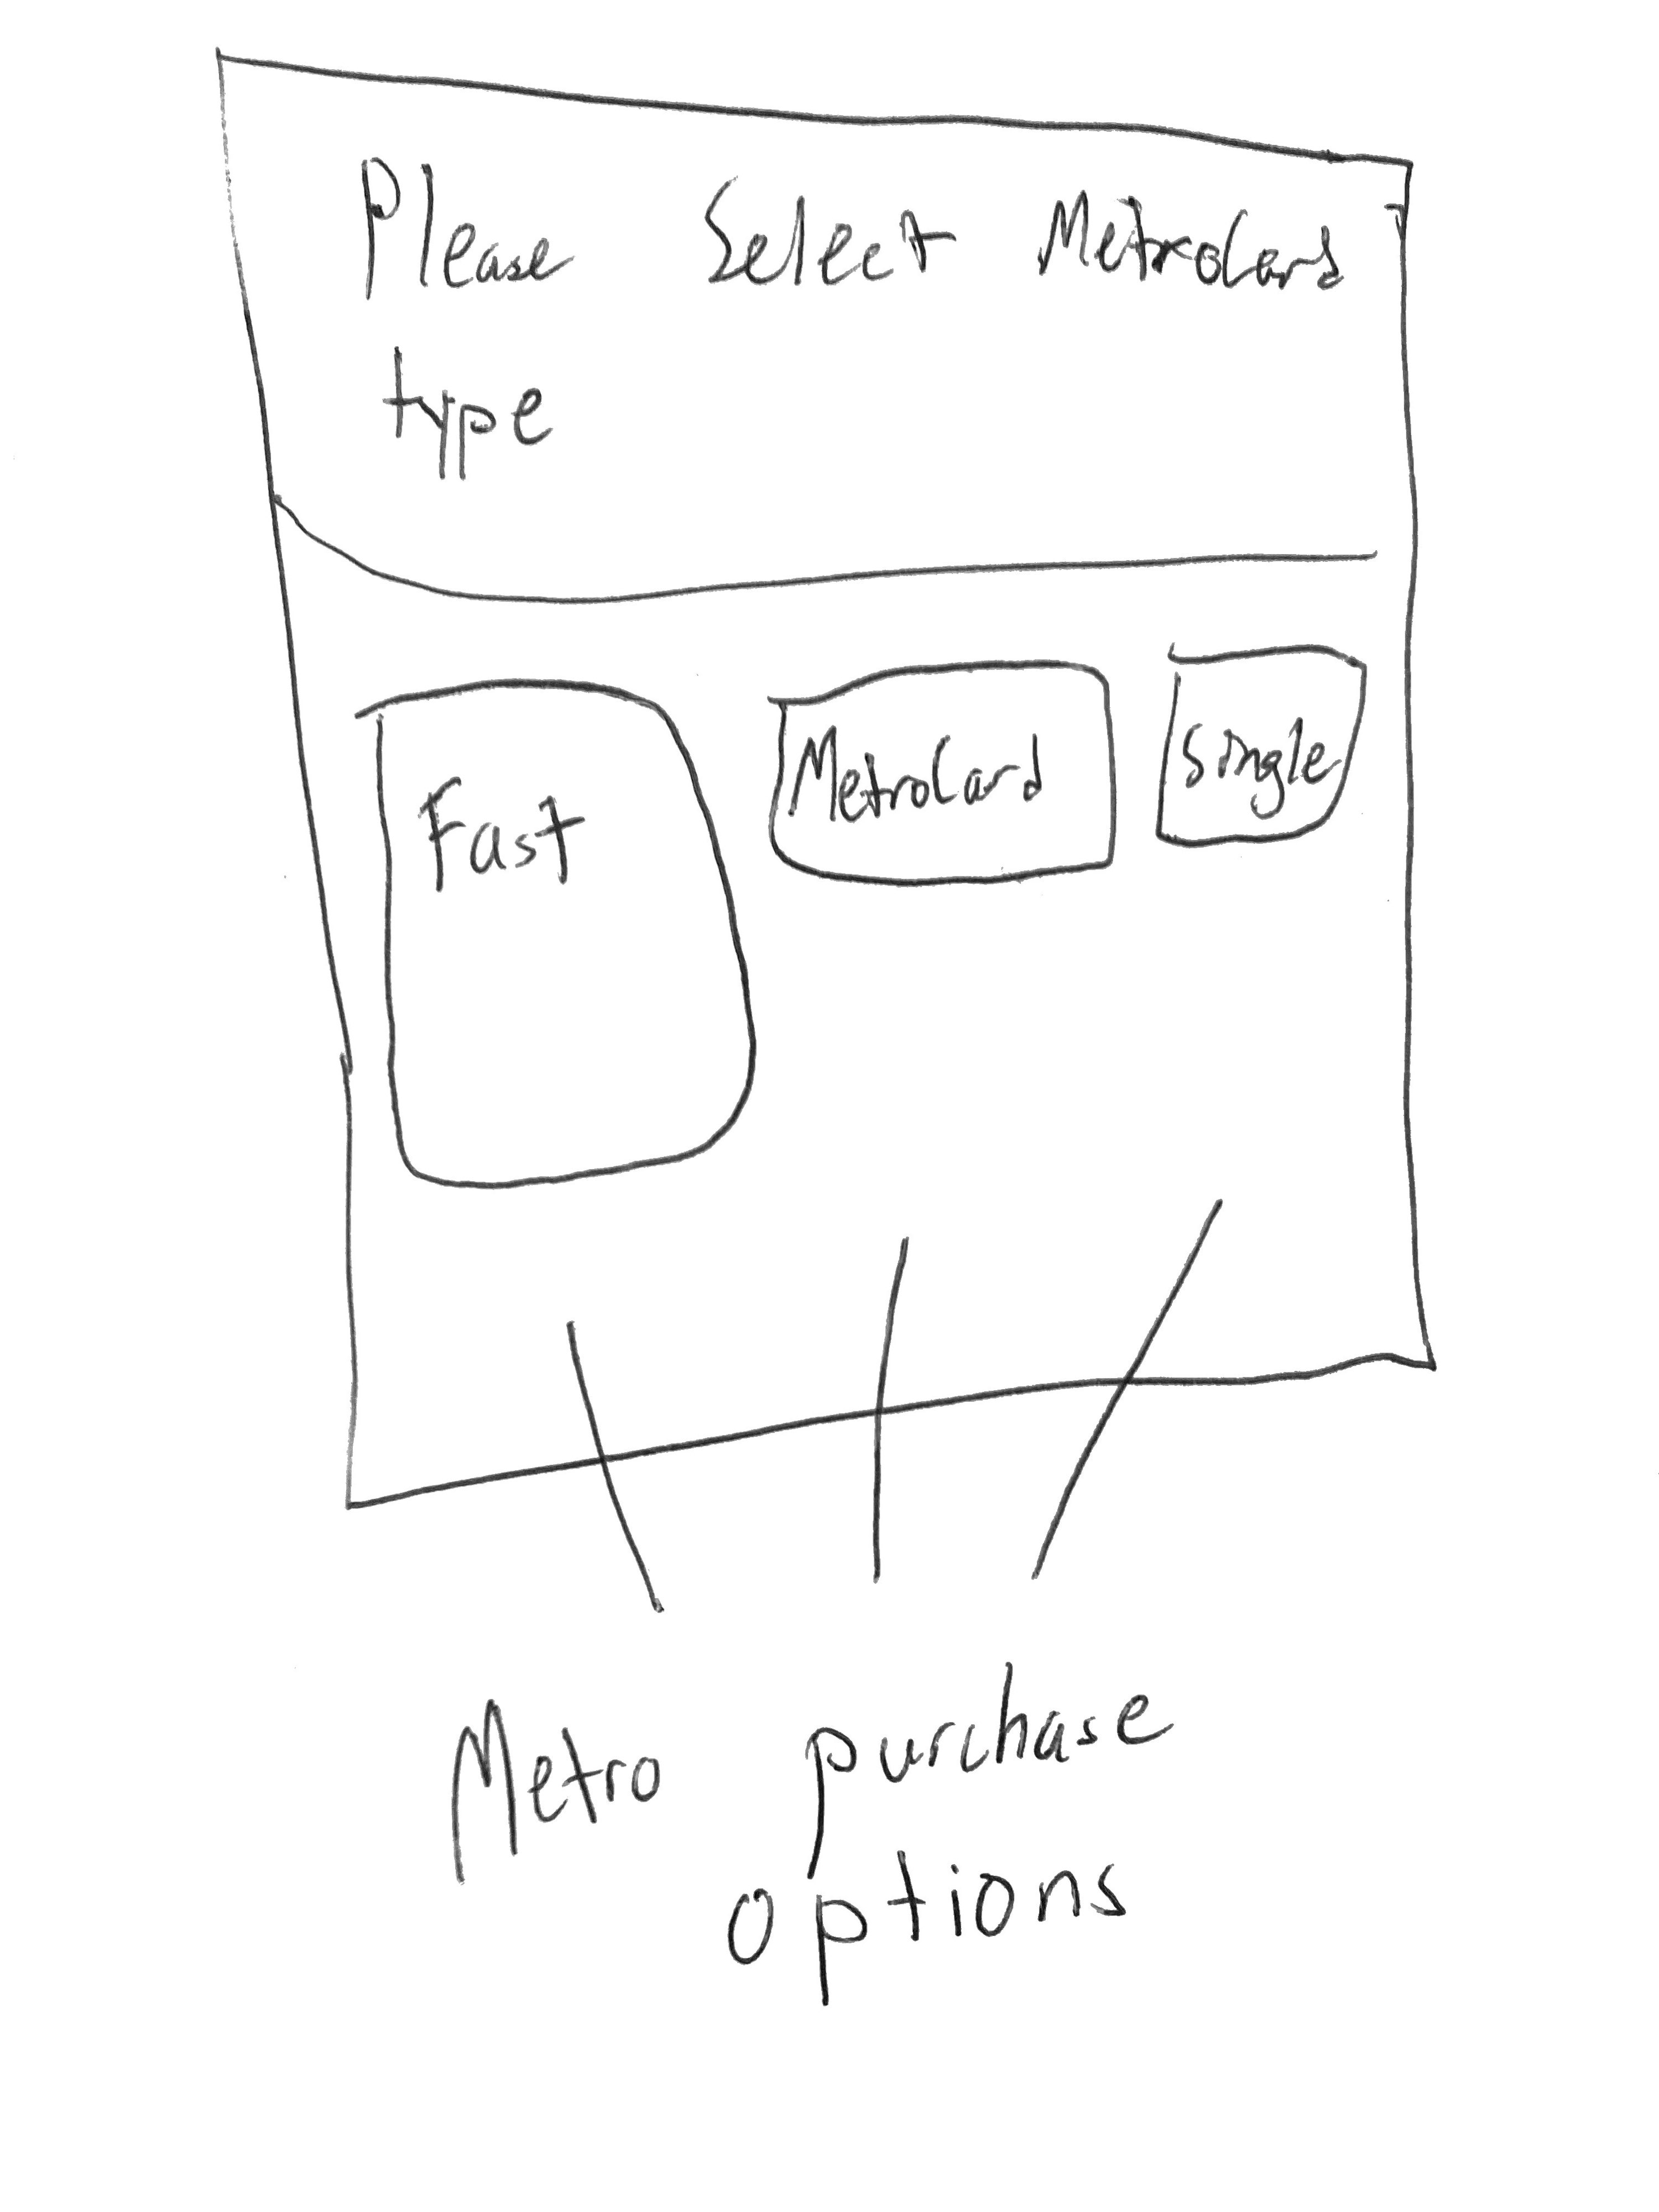 Please Select MetroCard
type
Fast MetroCard Single
Metro purchase
options